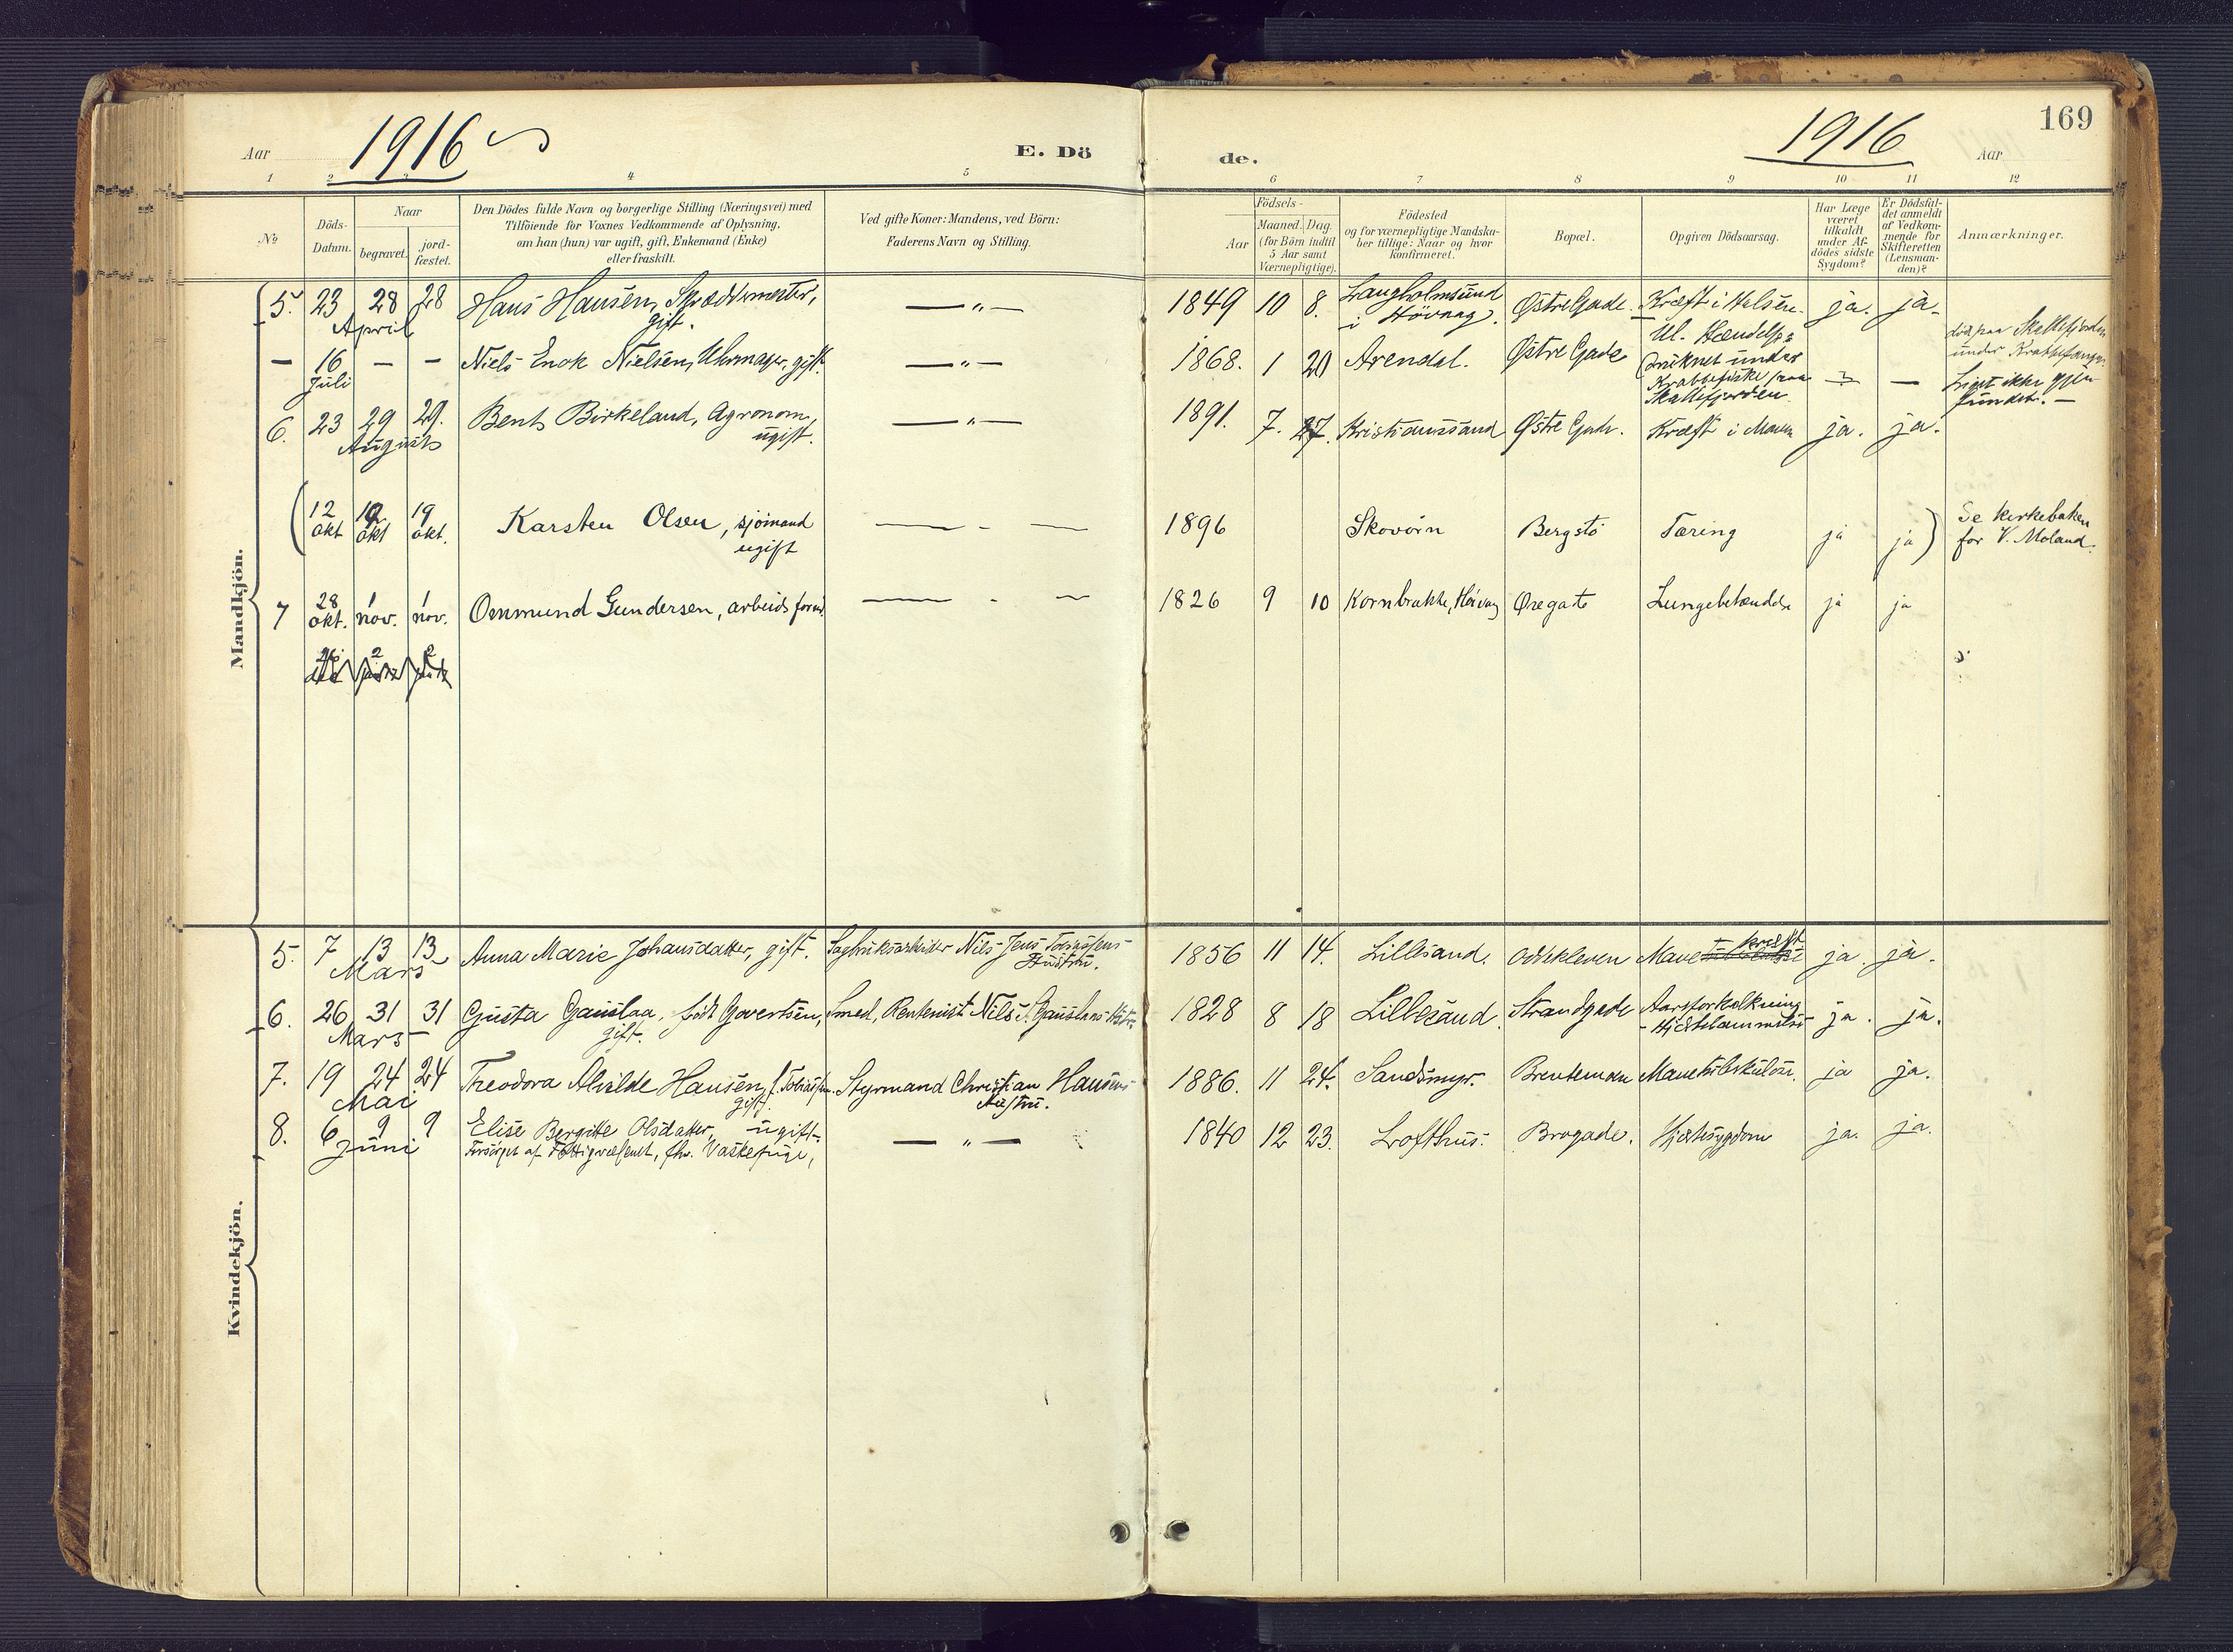 Aar 1916
E. Dö
de.
1916
Aar
169
1 2 3 4 5
6 7 8 9 10 11 12
No
Döds-
Datum.
Naar
begravet.
jord-
fæstet.
Den Dödes fulde Navn og borgerlige Stilling (Næringsvei) med
Tilföiende for Voxnes Vedkommende af Oplysning,
om han (hun) var ugift, gift, Enkemand (Enke)
eller fraskilt.
Ved gifte Koner: Mandens, ved Börn:
Faderens Navn og Stilling.
Födsels-
Aar
Maaned. Dag.
(for Börn indtil
5 Aar samt
Værnepligtige).
Födested
og for værnepligtige Mandska-
ber tillige: Naar og hvor
konfirmeret.
Bopæl.
Opgiven Dödsaarsag.
Har Læge
været
tilkaldt
under Af-
dödes sidste
Sygdom?
Er Dödsfal-
det anmeldt
af Vedkom-
mende for
Skifteretten
(Lensman-
den)?
Anmærkninger.
Mandkjön.
5. 23 28 28 Hans Hansen, Skræddermester, — " — 1849 10 8. Langholmsund Østre Gade. Kræft i Halsen. ja. ja.
April gift. i Hövaag.
— 16 — — Niels Enok Nielsen, Uhrmager, gift. — " — 1868. 1 20 Arendal. Østre Gade Ul. Hændelse:
Juli (druknet under
Krabbefiske paa — —
Skallefjorden
död paa Skallefjorden
under Krabbefangst.
Liget ikke gjen-
fundet. —
6. 23 29 29. Bent Birkeland, Agronom, — " — 1891. 7. 27. Kristianssand Østre Gade. Kræft i Maven ja. ja.
August ugift.
(12 19 19 Karsten Olsen, sjömand — - — 1896 Skovörn Bergstö Tæring ja ja)
okt okt okt. ugift
Se kirkeboken
for V. Moland.
7 28 1 1 Ommund Gundersen, arbeids — - — 1826 9 10 Kornbrække, Høivaag Øregate Lungebetændelse ja ja
okt. nov. nov.
26 2 2
Kvindekjön.
5. 7 13 13 Anna Marie Johansdatter, gift. Sagbruksarbeider Nils Jens Tobiassens 1856 11 14. Lillesand. Oddekleven Mavekræft ja. ja.
Mars Hustru.
6. 26 31 31 Gusta Gauslaa, födt Govertsen, Smed, Rentenist Nils J. Gauslaas Hustru 1828 8 18 Lillesand. Strandgade Aareforkalkning ja. ja.
Mars gift. - Hjertelammelse
7. 19 24 24 Theodora Alvilde Hansen, f. Tobiassen. Styrmand Christian Hansens 1886. 11 24. Sandsmyr. Brentemoen Mavetuberkulose. ja ja.
Mai gift. Hustru.
8. 6 9 9 Elise Bergitte Olsdatter, ugift. — " — 1840 12 23. Lofthus. Brogade. Hjertesygdom ja. ja.
Juni Forsörget af Fattigvæsenet, fhv. Vaskepige,